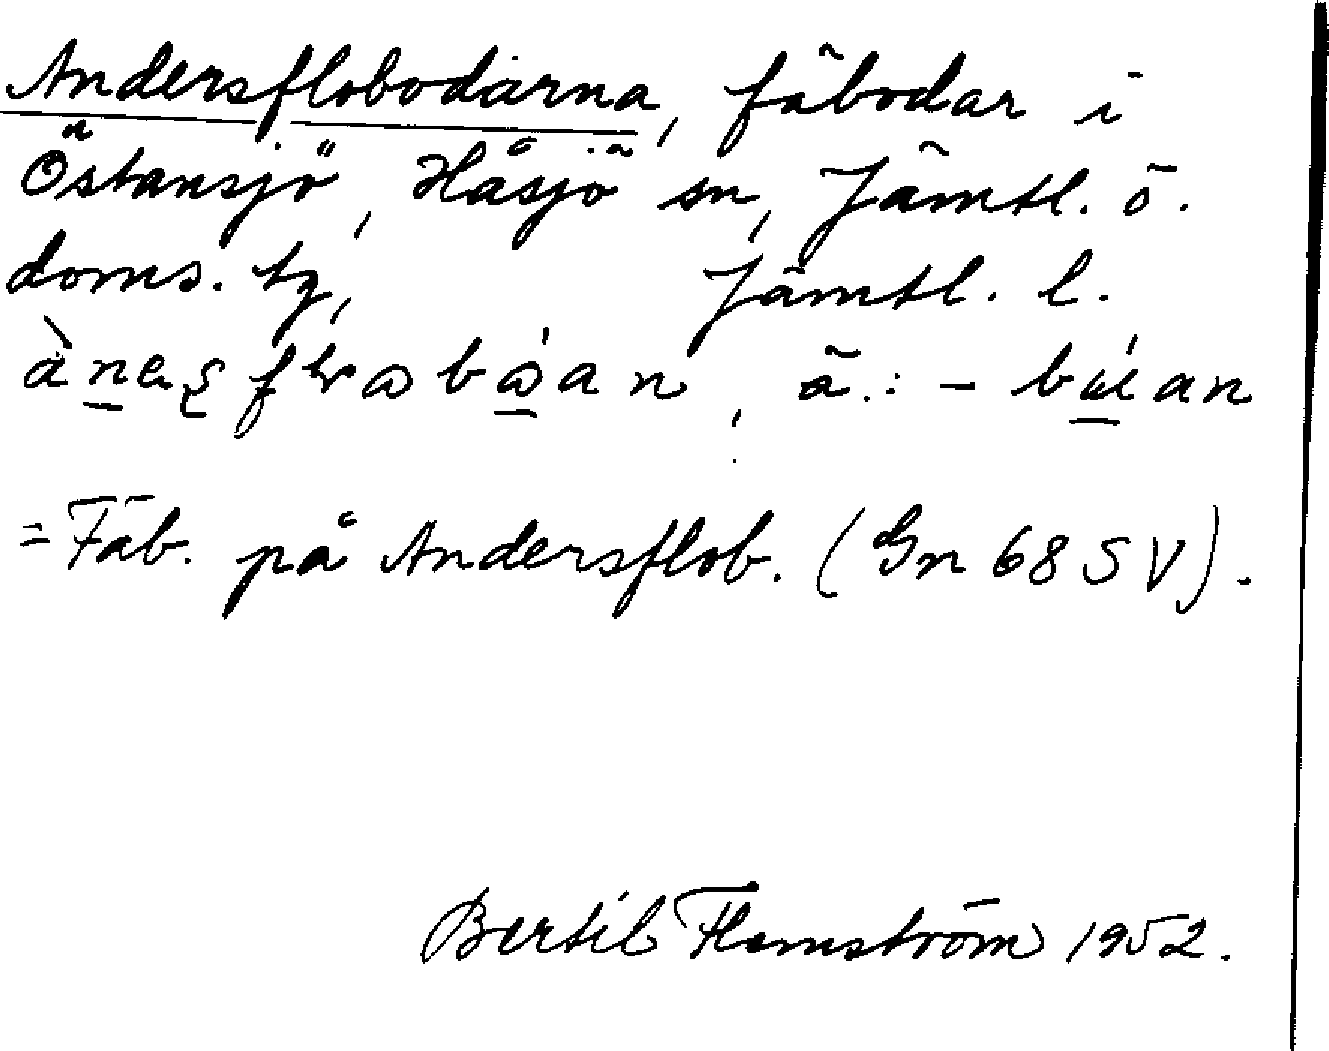 Andersflobodarna, fäbodar i
Östansjö, Håsjö sn, Jämtl. ö.
doms. tg, Jämtl. l.
ä.: -
= Fäb. på Andersflob. (Gn 68 SV).
Bertil Flemström 1952.